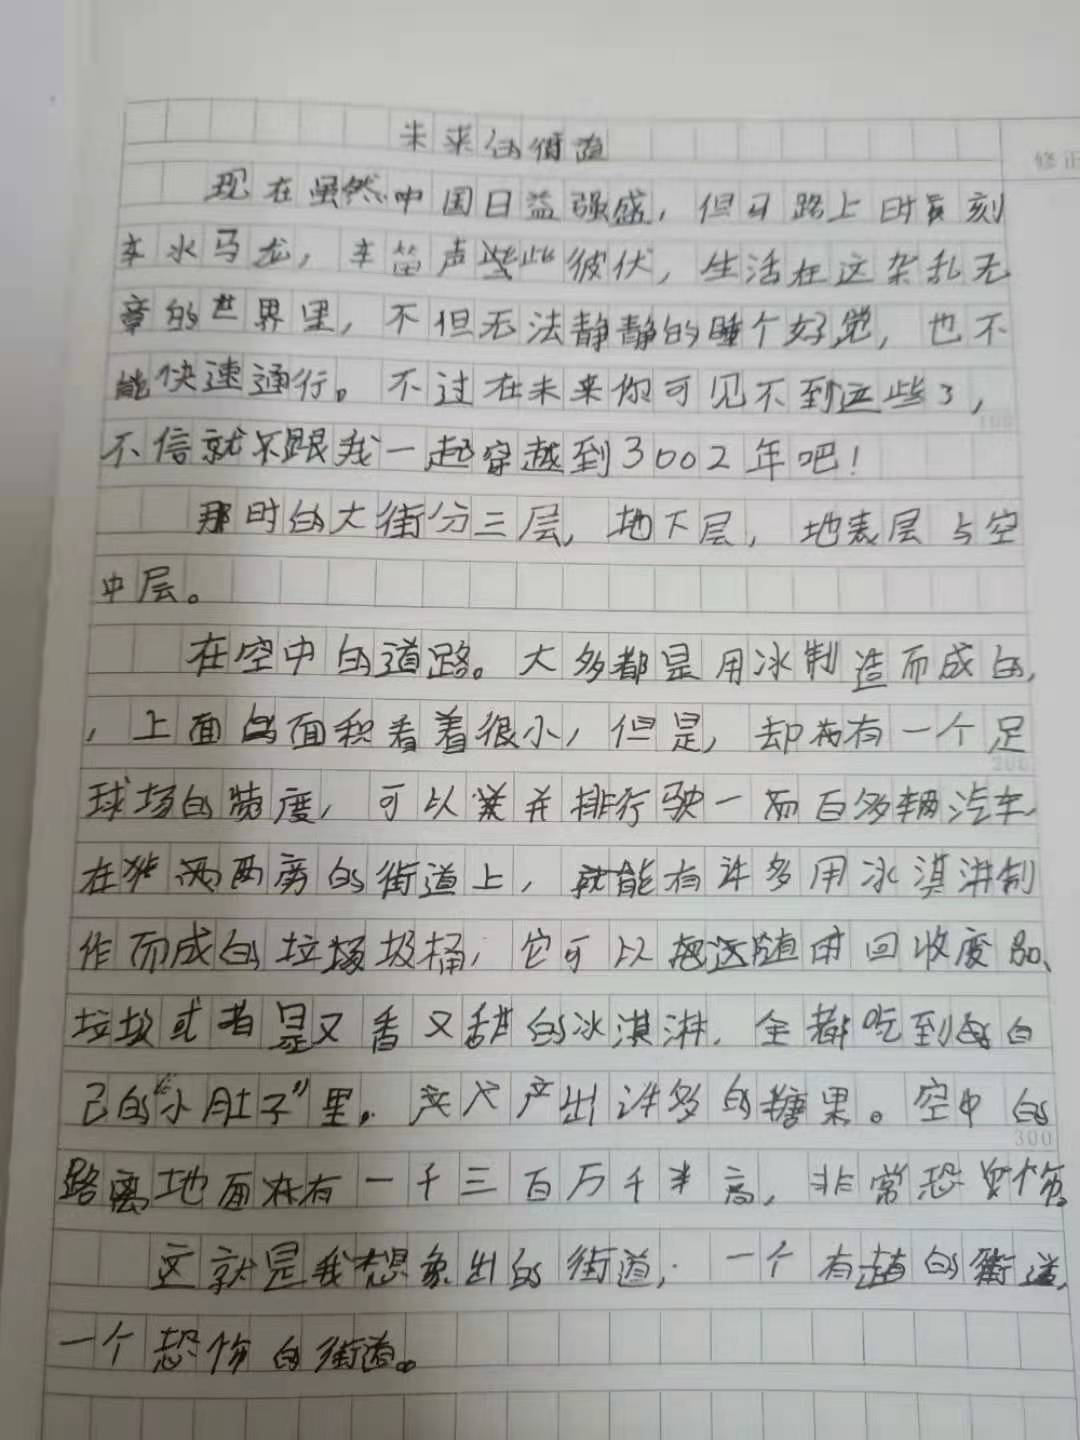 未来的街道
修正
现在虽然中国日益强盛，但马路上时刻
车水马龙，车笛声此彼伏，生活在这杂乱无
章的世界里，不但无法静静的睡个好觉，也不
能快速通行。不过在未来你可见不到这些了，
100
不信就不跟我一起穿越到3002年吧！
那时的大街分三层，地下层，地表层与空
中层。
在空中的道路。大多都是用冰制造而成的，
，上面的面积看着很小，但是，却有一个足
200
球场的宽度，可以并排行驶一百多辆汽车
在两旁的街道上，就能有许多用冰淇淋制
作而成的垃圾桶，它可以把随时回收废品、
垃圾或者是又香又甜的冰淇淋，全都吃到自
己的“小肚子”里。产出许多的糖果。空中的
300
路离地面有一千三百万千米高，非常恐怖。
这就是我想象出的街道，一个有趣的街道，
一个恐怖的街道。